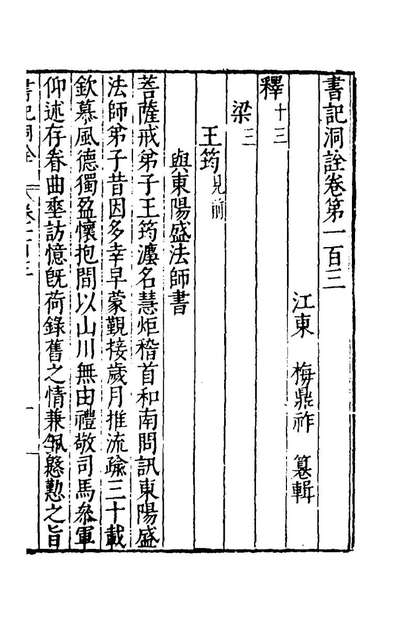 書記洞詮卷第一百三
江東 梅鼎祚 纂輯
釋十三
梁三
王筠見前
與東陽盛法師書
菩薩戒弟子王筠瀍名慧炬稽首和南問訊東陽盛
法師弟子昔因多幸早蒙覲接歲月推流疏三十載
欽慕風德獨盈懷抱間以山川無由禮敬司馬叅軍
仰述存眷曲垂訪憶旣荷錄舊之情兼佩慇懃之旨